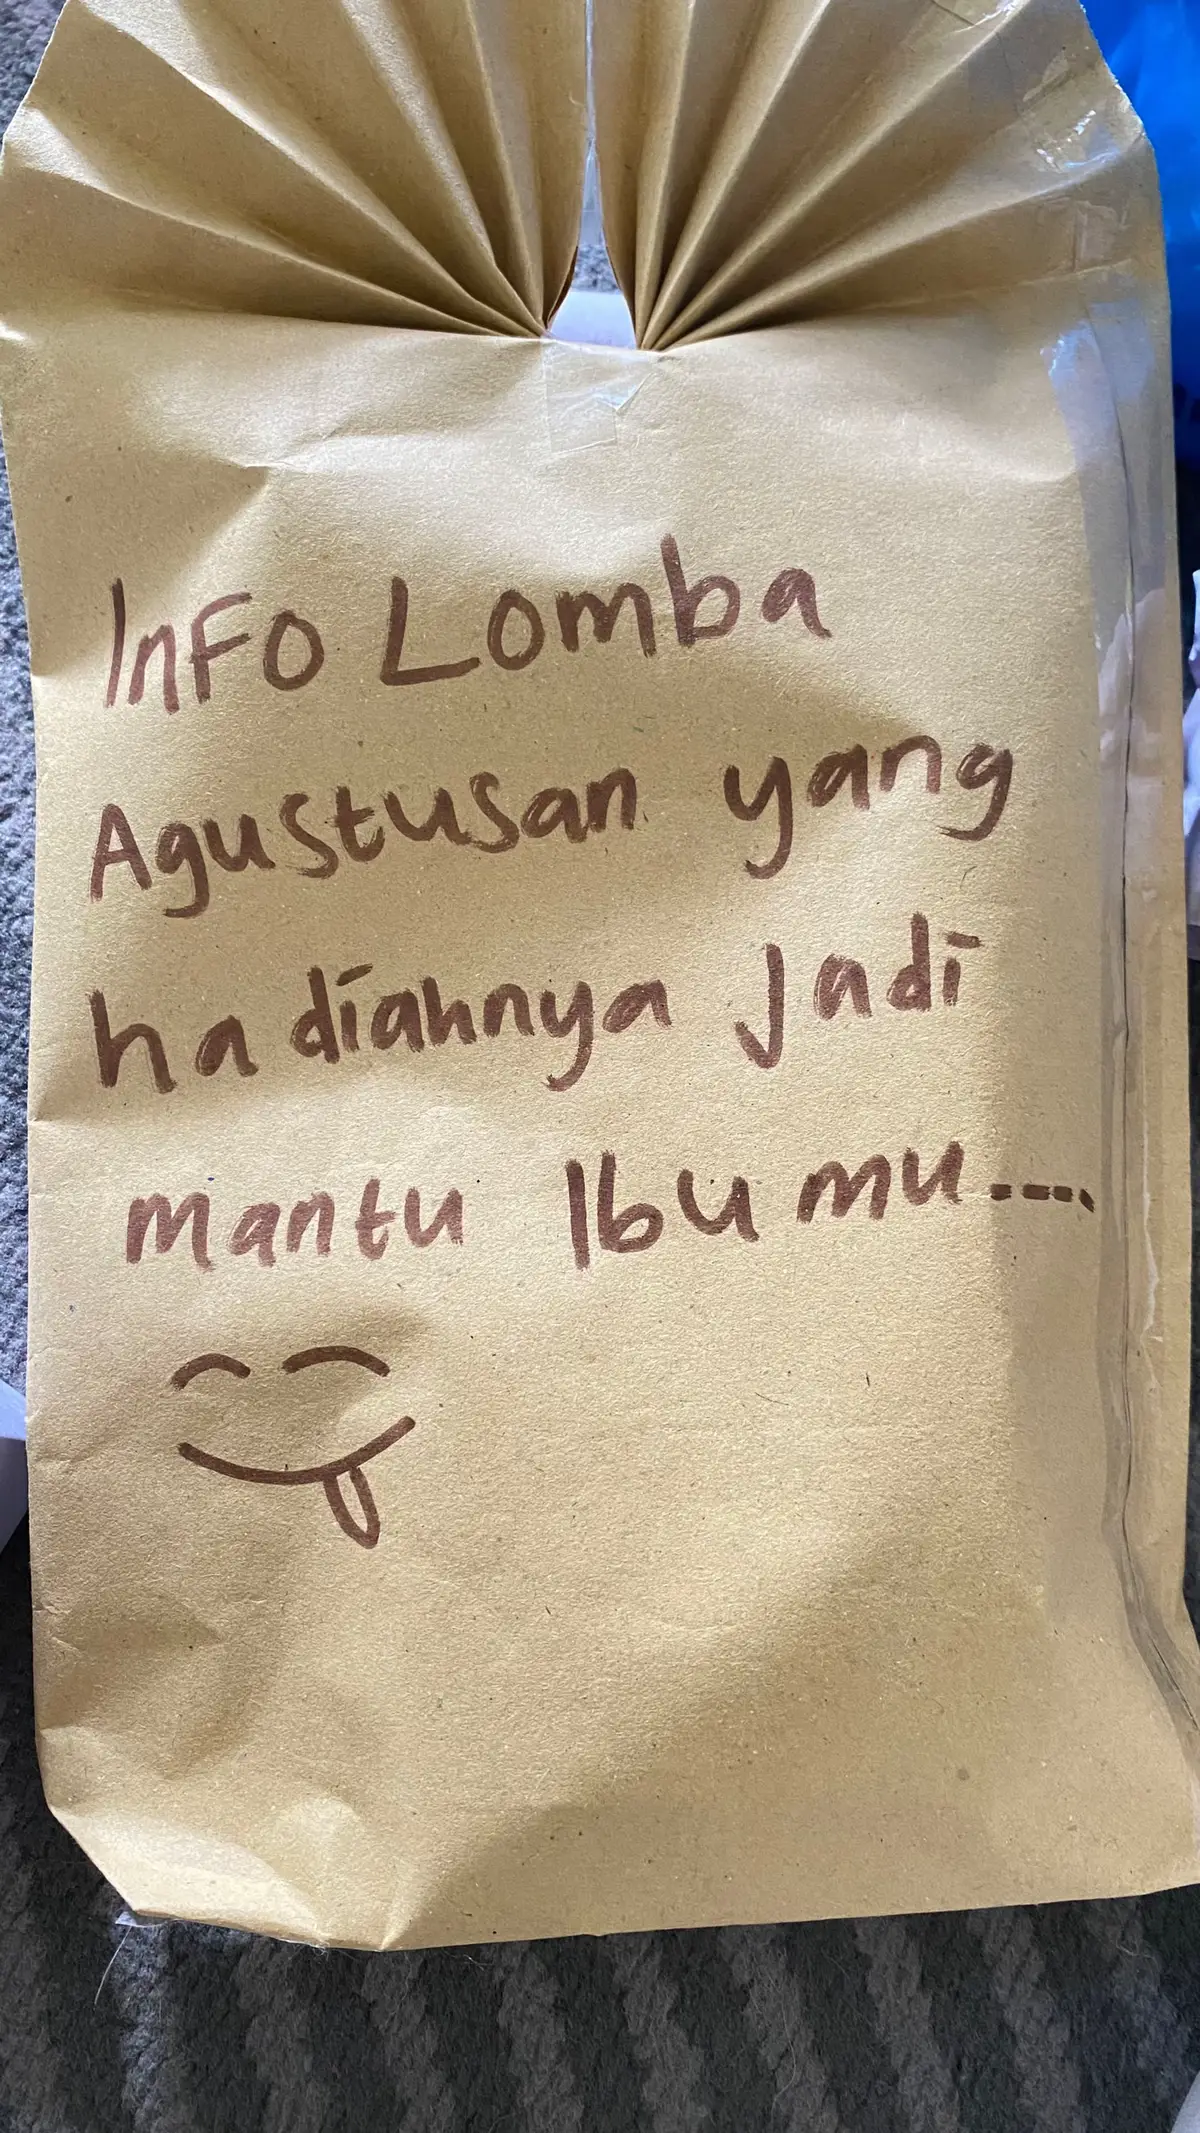 Info Lomba
Agustusan yang
hadiahnya Jadi
mantu Ibu mu....